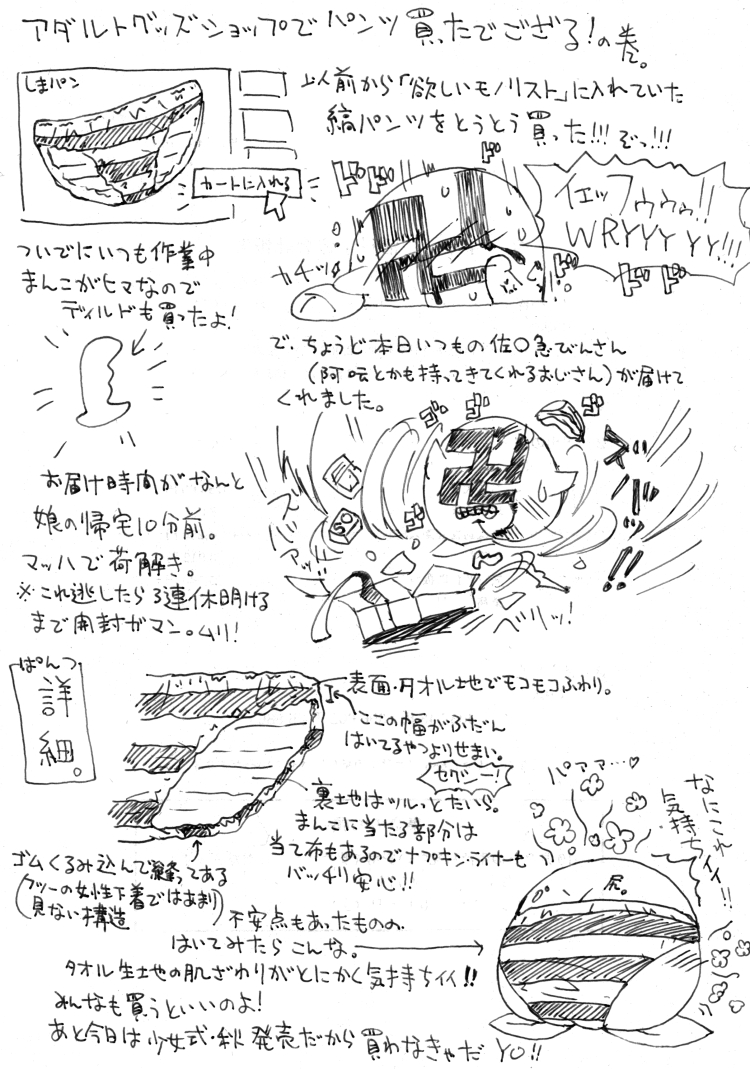 アダルトグッズショップでパンツ買ったでござる!の巻。
しまパン
カートに入れる
以前から「欲しいモノリスト」に入れていた
縞パンツをとうとう買った!!!ぞっ!!!
ドド
ドド
ドド
イエッフゥゥゥ!!
WRYYYYYY!!!
カチッ
ドド
ドド
ドド
ついでにいつも作業中
まんこがヒマなので
ディルドも買ったよ!
で、ちょうど本日いつもの佐〇急びんさん
(阿吽とかも持ってきてくれるおじさん)が届けて
くれました。
ゴゴ
ゴゴ
ゴゴ
ズバァッ
ズバッ!!
50
ベリッ!
お届け時間がなんと
娘の帰宅10分前。
マッハで荷解き。
※これ逃したら3連休明ける
まで開封ガマン。ムリ!
ぱんつ
詳細。
表面・タオル地でモコモコふわり。
ここの幅がふだん
はいてるやつよりせまい。
セクシー!
裏土地はツルっとたいら。
まんこに当たる部分は
当て布もあるのでナプキン・ライナーも
バッチリ安心!!
ゴムくるみ込んで縫ってある
(フツーの女性下着ではあまり
見ない構造)
パァァァ…♡
なにこれ
気持ちイイ!!
尻。
不安点もあったものの、
はいてみたらこんな。
タオル生土地の肌ざわりがとにかく気持ちイイ!!
みんなも買うといいのよ!
あと今日は少女式・秋発売だから買わなきゃだYO!!